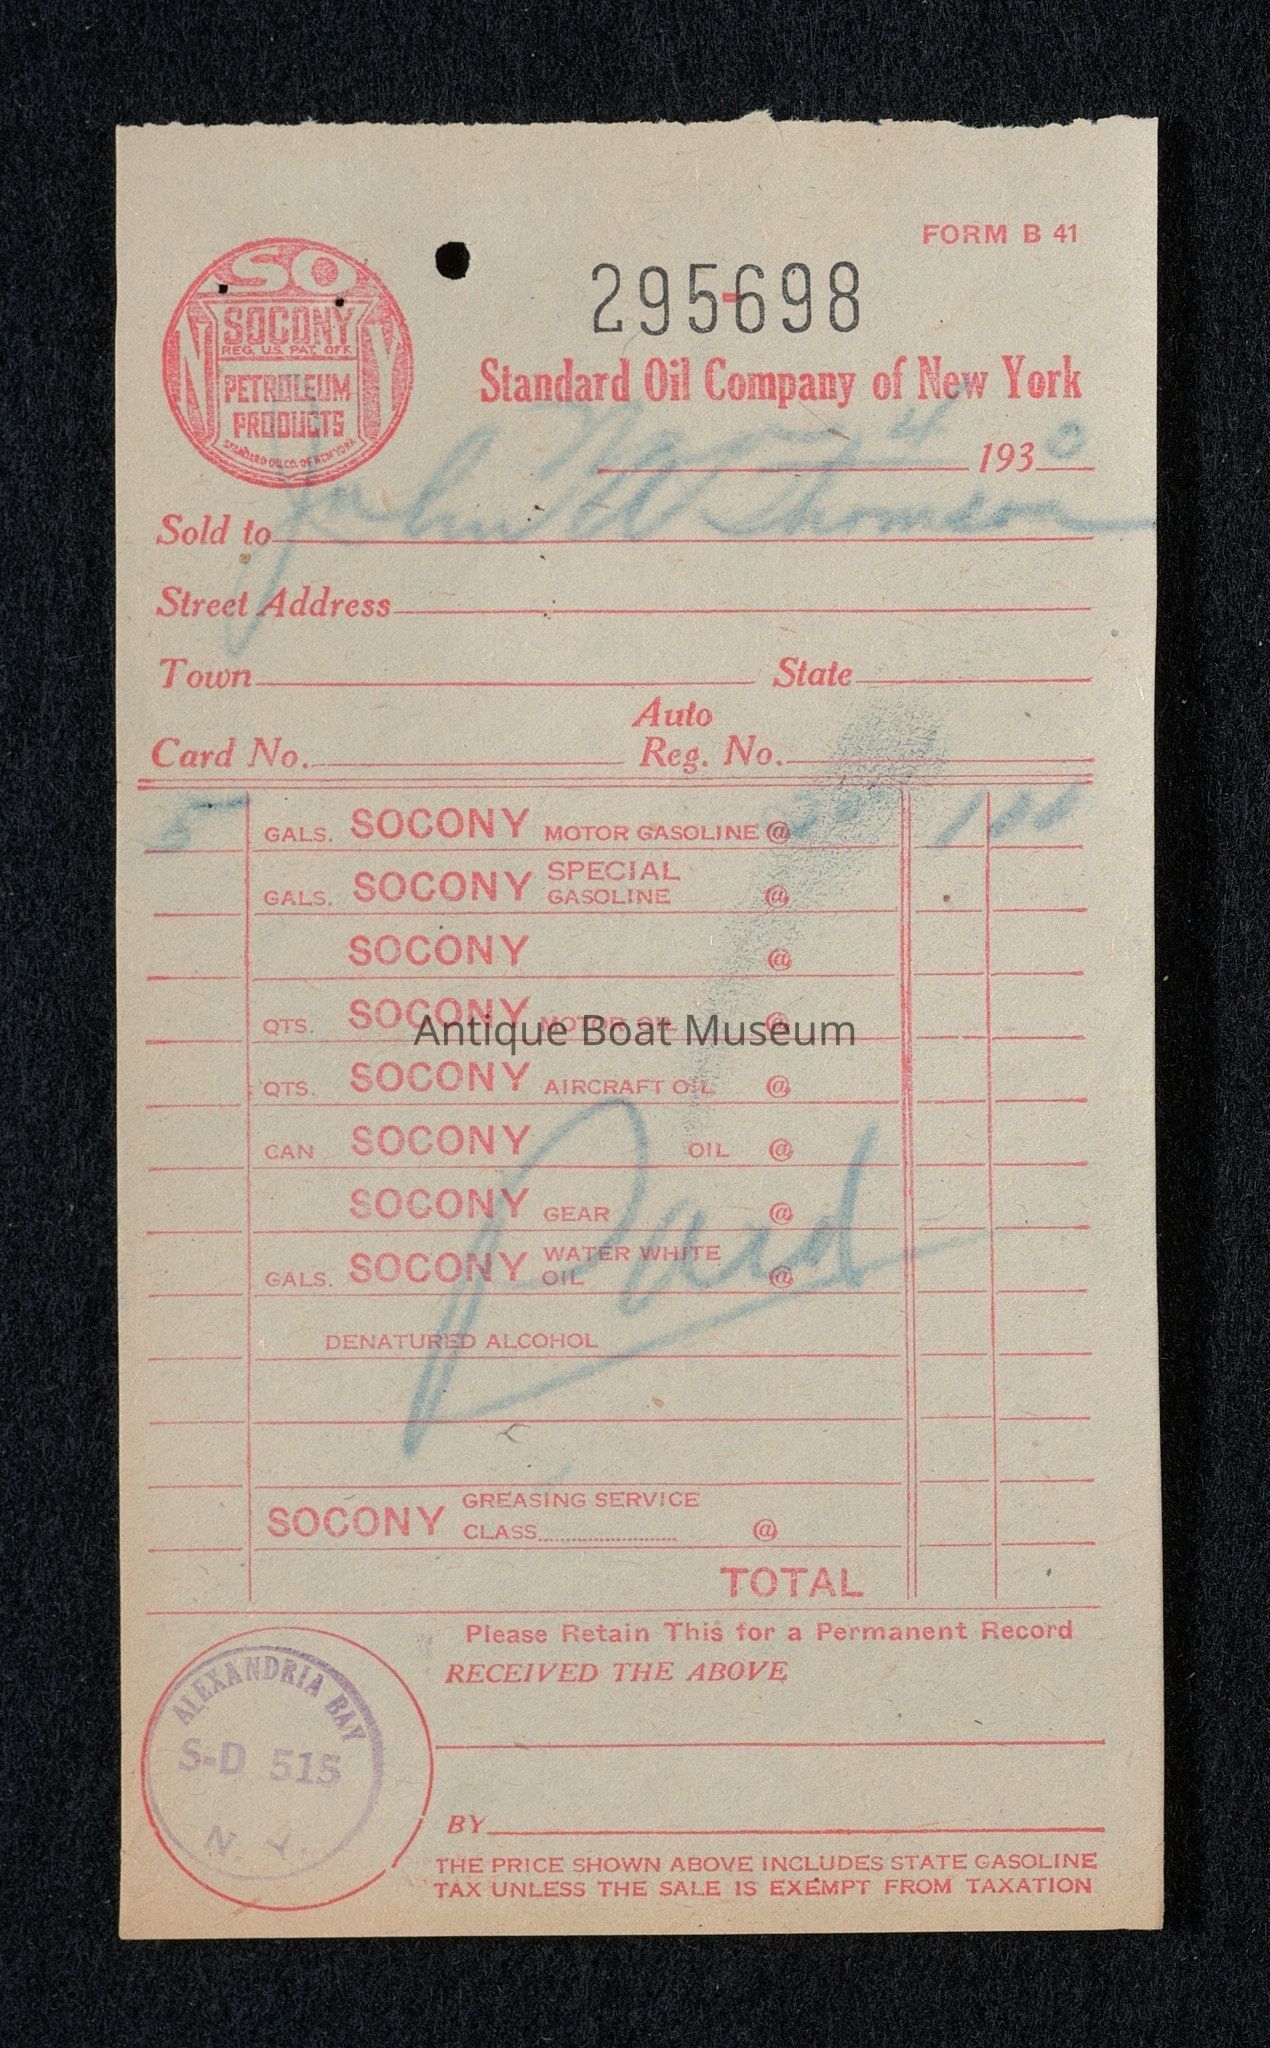 FORM B 41
SO
SOCONY
REG. U.S. PAT. OFF.
PETROLEUM
PRODUCTS
STANDARD OIL CO. OF NEW YORK
295-698
Standard Oil Company of New York
4 1930
Sold to John Thomson
Street Address
Town State
Auto
Card No. Reg. No.
5 GALS. SOCONY MOTOR GASOLINE @ 20 1 00
SPECIAL
GALS. SOCONY GASOLINE @
SOCONY @
QTS. SOCONY MOTOR OIL @
Antique Boat Museum
QTS. SOCONY AIRCRAFT OIL @
CAN SOCONY OIL @
SOCONY GEAR @
WATER WHITE
GALS. SOCONY OIL @
Paid
DENATURED ALCOHOL
GREASING SERVICE
SOCONY CLASS @
TOTAL
Please Retain This for a Permanent Record
RECEIVED THE ABOVE
ALEXANDRIA BAY
S-D 515
N. Y.
BY
THE PRICE SHOWN ABOVE INCLUDES STATE GASOLINE
TAX UNLESS THE SALE IS EXEMPT FROM TAXATION